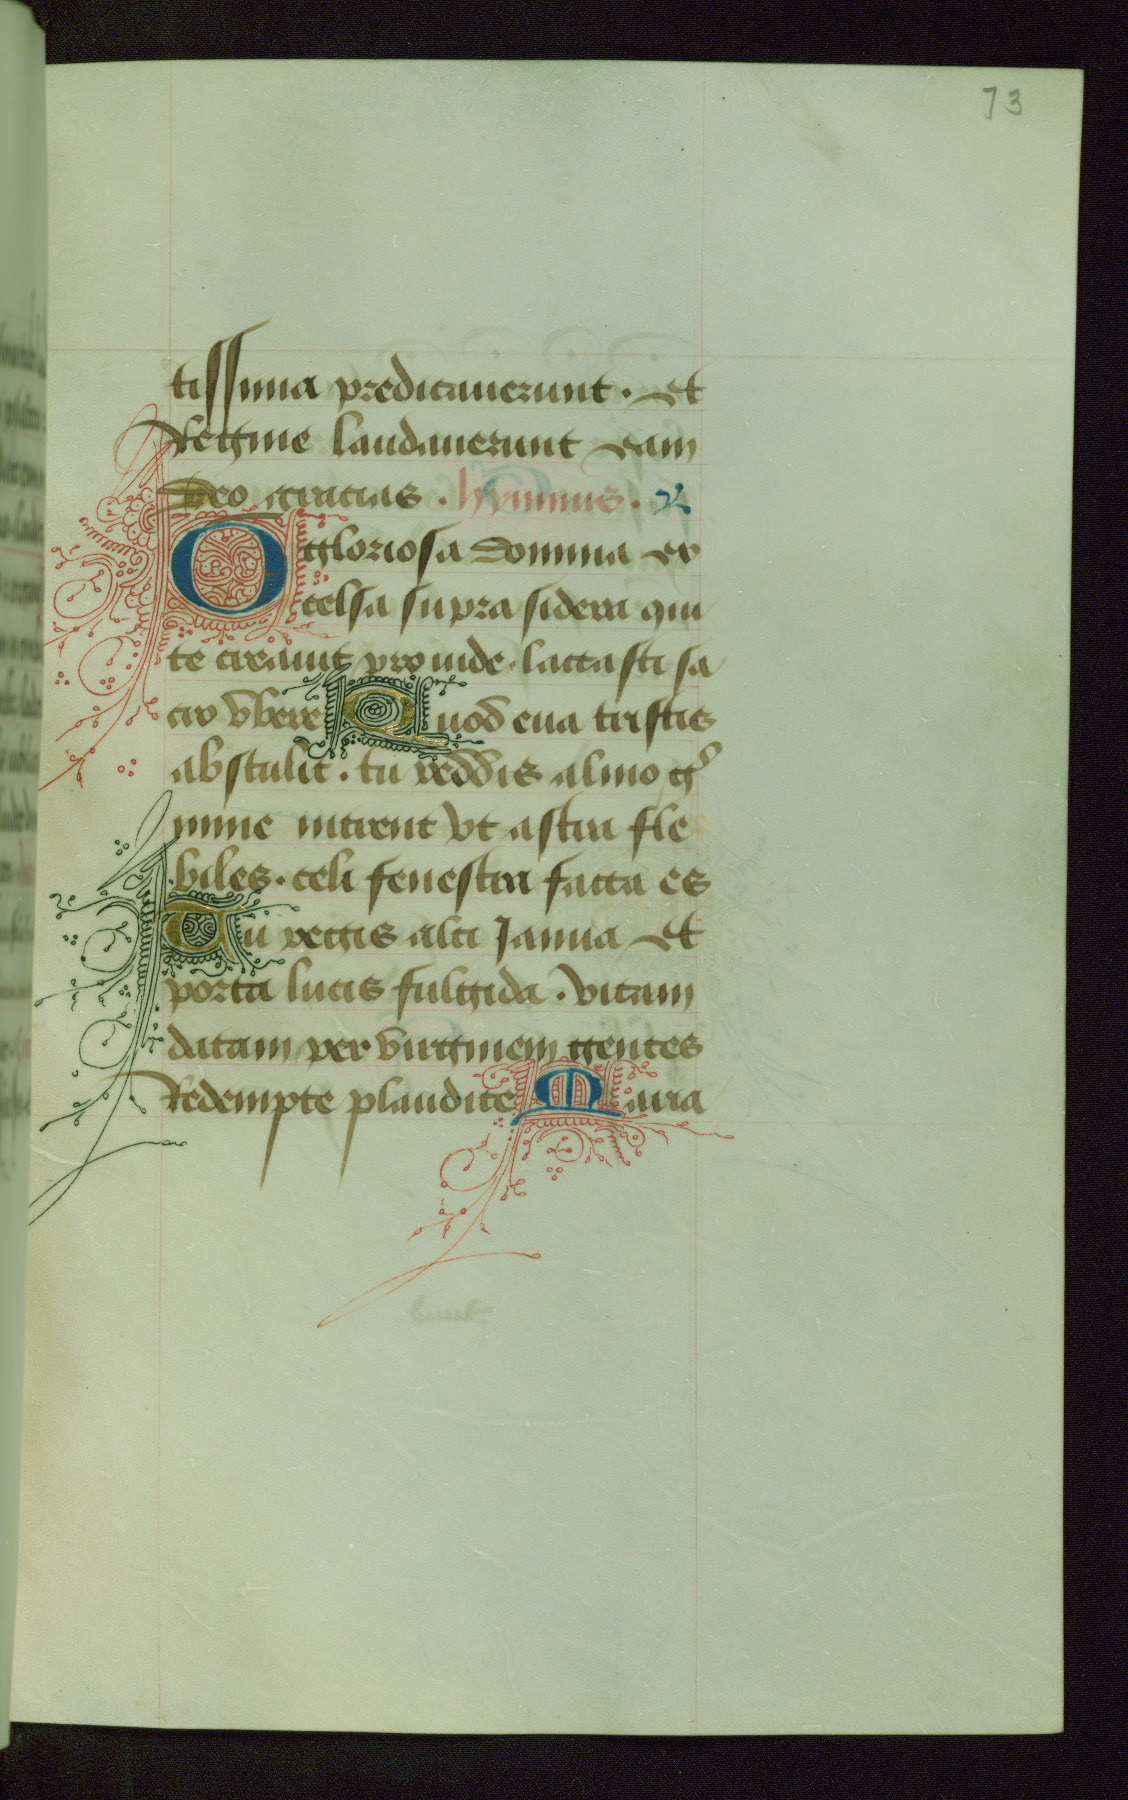 73
tissima predicauerunt . et
Regine laudauerunt eam
deo gracias . hymnus .
O gloriosa domina ex
celsa supra sidera qui
te creauit prouide . lactasti sa
cro vbere Quod eua tristis
abstulit . tu reddis almo gr̄
mine intrent vt astra fle
biles . celi fenestra facta es
Tu regis alti Janua et
porta lucis fulgida . vitam
datam per virginem gentes
Redempte plaudite Maria